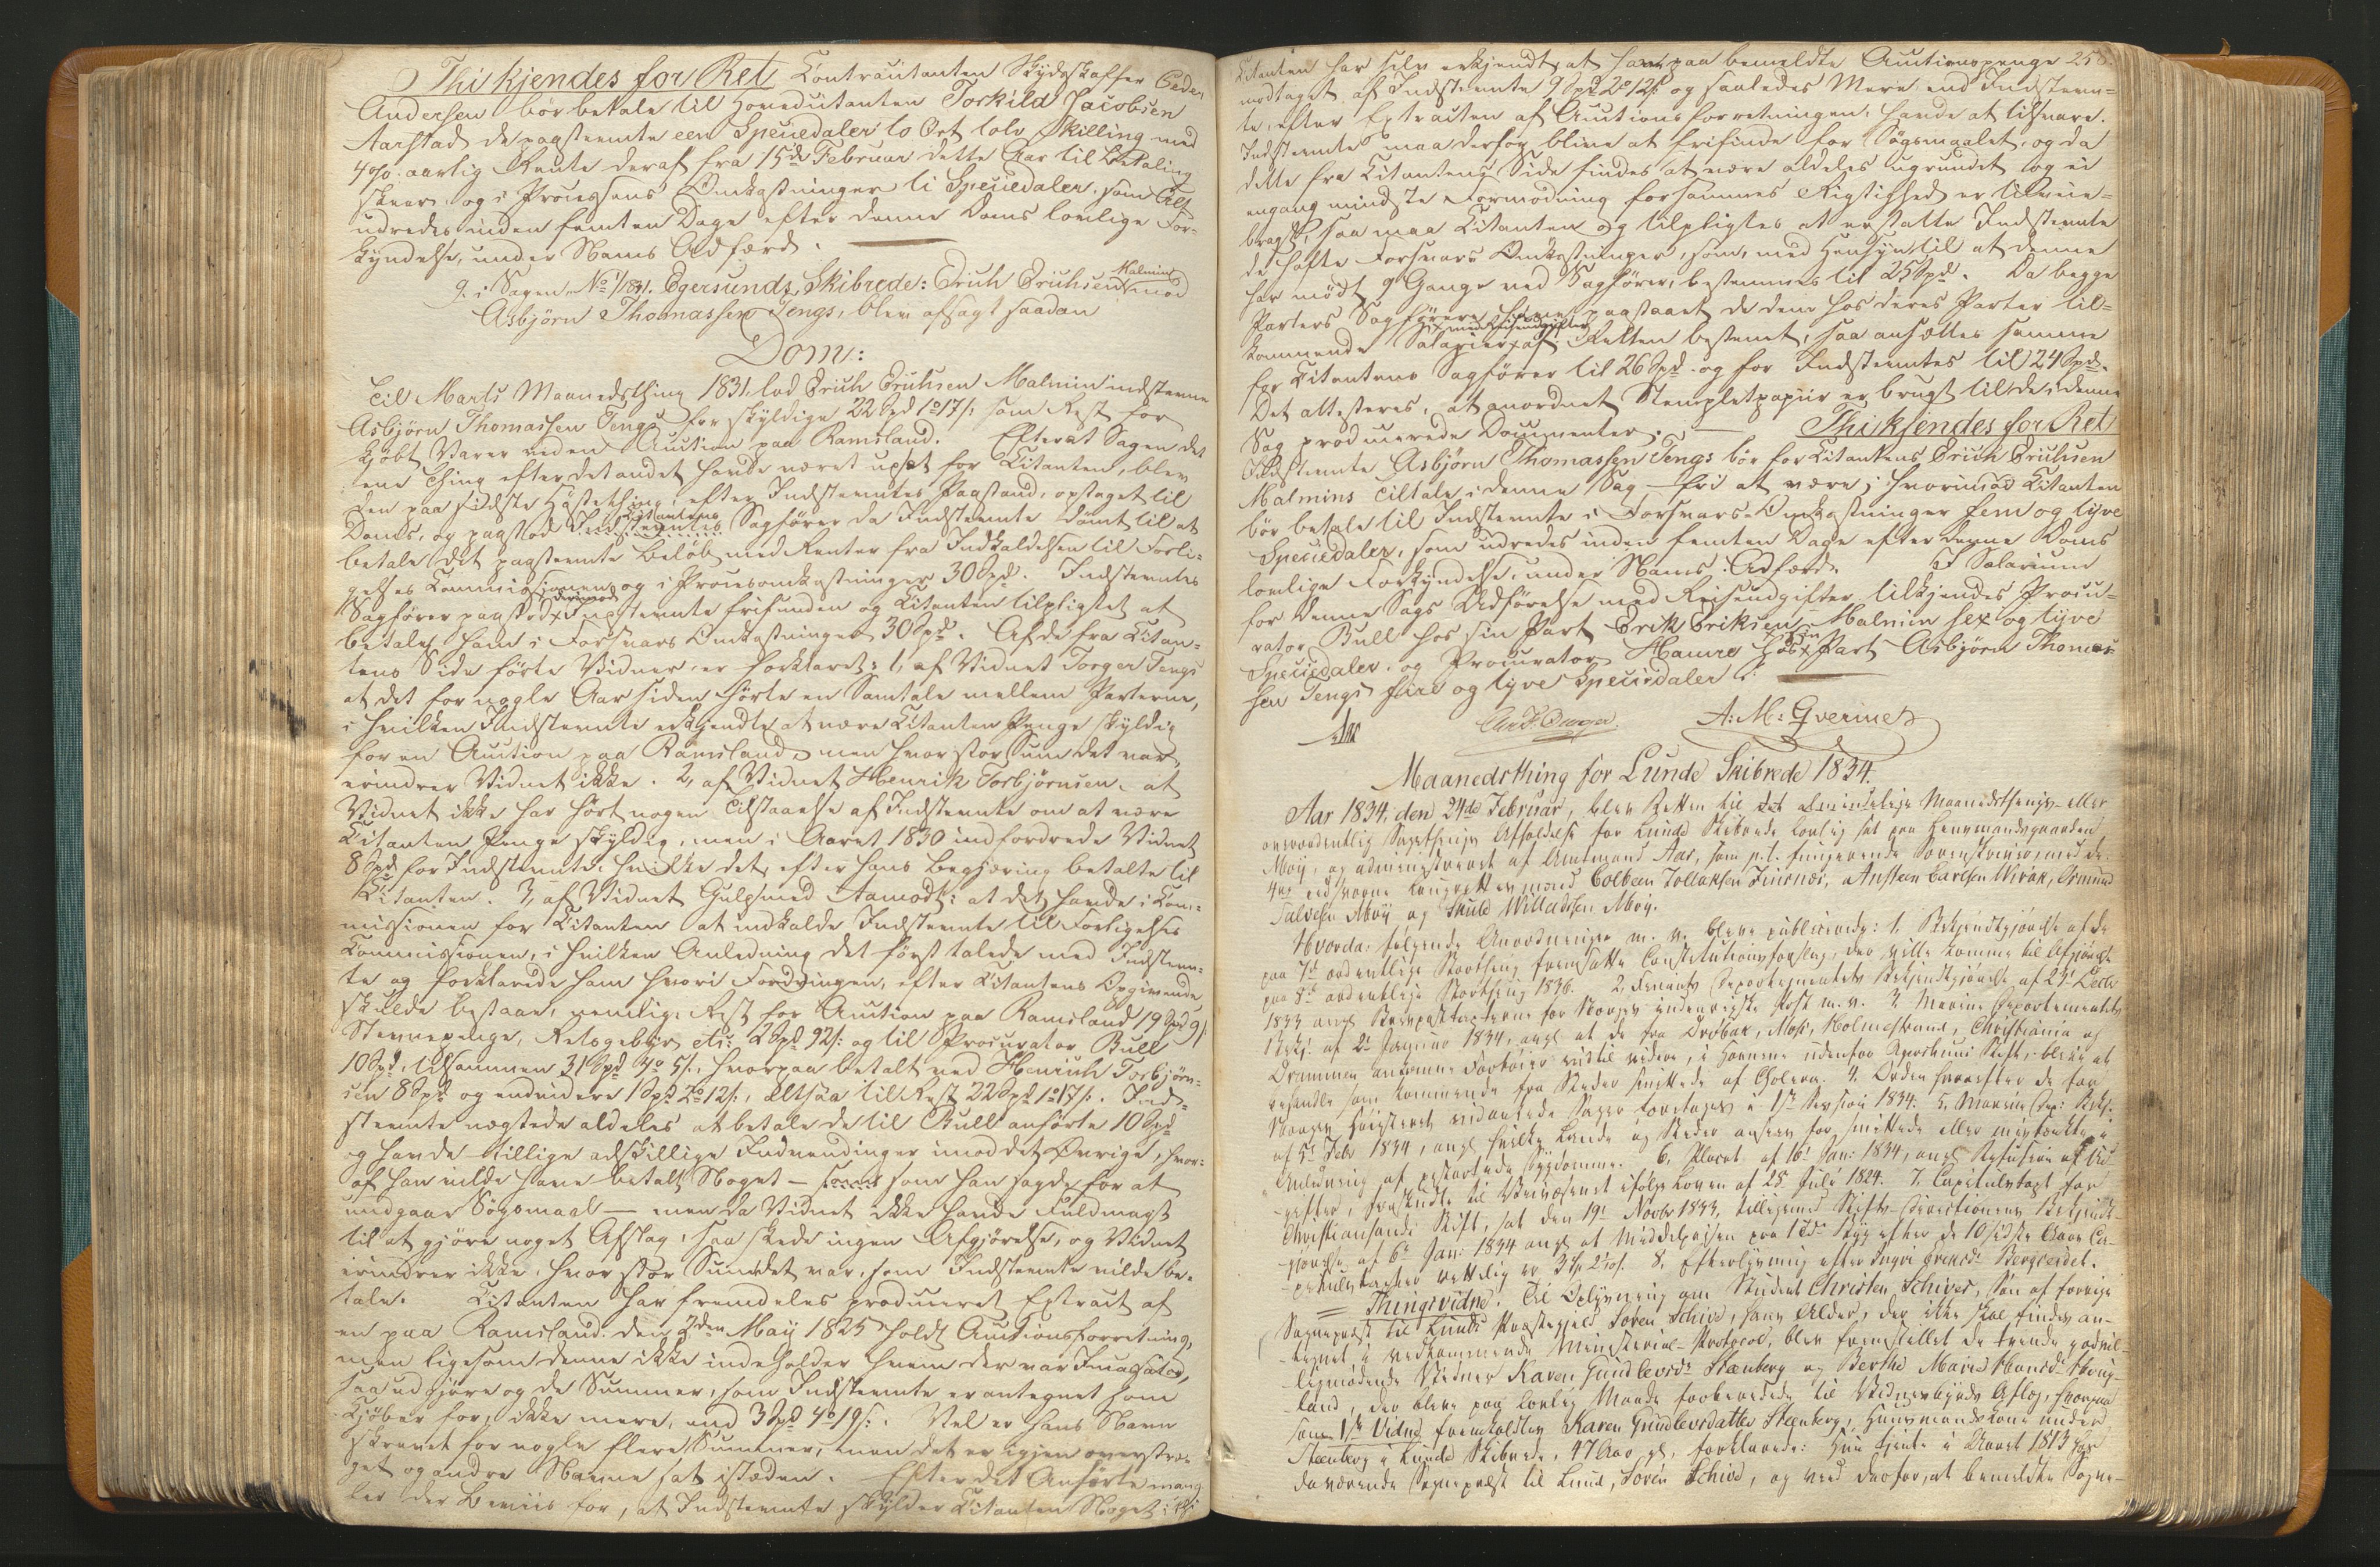 Thi kjendes for Ret Contracitanten Skydsskaffer Peder
Andersen bør betale til Hovedcitanten Torkild Jacobsen
Aarstad de paastevnte een Speciedaler to Ort tolv Skilling med
4 o/o aarlig Rente deraf fra 15de Februar dette Aar til Betaling
skeer, og i Processens Omkostninger ti Speciedaler, som Alt
udredes inden femten Dage efter denne Doms lovlige For-
kyndelse, under Nams Adfærd.
9. i Sagen No 1/1831. Egersunds Skibrede: Erich Erichsen Malmin mod
Asbjørn Thomassen Tengs, blev afsagt saadan
Dom:
Til Marts Maanedsthing 1831 lod Erich Erichsen Malmin indstevne
Asbjørn Thomassen Tengs for skyldige 22 Spd 1o 17 s. som Rest for
kjøbt Varer ved en Auction paa Ramsland. Efterat Sagen det
ene Thing efter det andet havde været upsat for Citanten, blev
den paa sidste Høstething, efter Indstevntes Paastand, optaget til
Doms, og paastod Indstevntes Citantens Sagfører da Indstevnte dømt til at
betale det paastevnte Beløb med Renter fra Indkaldelsen til Forli-
gelses Commissionen og i Procesomkostninger 30 Spd. Indstevntes
Sagfører paastod derimod Indstevnte frifunden og Citanten tilpligtet at
betale ham i Forsvars Omkostninger 30 Spd. Af de fra Citan-
tens Side førte Vidner er forklaret: 1, af Vidnet Torger Tengs
at det for nogle Aar siden hørte en Samtale mellem Parterne,
i hvilken Indstevnte erkjendte at være Citanten Penge skyldig
for en Auction paa Ramsland, men hvor stor Sum det var,
erindrer Vidnet ikke. 2, af Vidnet Henrik Torbjørnsen, at
Vidnet ikke har hørt nogen Tilstaaelse af Indstevnte om at være
Citanten Penge skyldig, men i Aaret 1830 indfordrede Vidnet
8 Spd for Indstevnte, hvilke det, efter hans Begjæring betalte til
Citanten. 3, af Vidnet Aamodt: at det havde i Com-
missionen for Citanten at indkalde Indstevnte til Forligelses
Commissionen, i hvilken Anledning det først talede med Indstevn-
te og forklarede ham hvori Fordringen, efter Citantens Opgivende
skulde bestaae, nemlig: Rest for Auction paa Ramsland 19 Spd 91
Stevnepenge, Retsgebyr etc: 2 Spd 92 s. og til Procurator Bull
10 Spd, tilsammen 31 Spd 4o 5 s., hvorpaa betalt ved Henrich Torbjørn-
sen 8 Spd og endvidere 1 Spd 2o 12 s., altsaa til Rest 22 Spd 1o 17 s. Ind-
stevnte nægtede aldeles at betale de til Bull anførte 10 Spd
og havde tillige adskillige Indvendinger imod det Øvrige, hvor-
af han vilde have betalt Noget — som han sagde for at
undgaae Søgsmaal — men da Vidnet ikke havde Fuldmagt
til at gjøre noget Afslag, saa skede ingen Afgjørelse, og Vidnet
erindrer ikke, hvor stor Sum det var, som Indstevnte vilde be-
tale. Citanten har fremdeles produceret Extract af
en paa Ramsland den 3den May 1825 holdt Auctionsforretning,
men ligesom denne ikke indeholder hvem der var Incassator,
saa udgjøre og de Summer, som Indstevnte er antegnet som
Kjøber for, ikke mere, end 3 Spd 4o 19 s. Vel er hans Navn
skrevet for nogle flere Summer, men det er igjen overstrø-
get og andre Navne sat isteden. Efter det Anførte mang-
ler der Beviis for, at Indstevnte skylder Citanten Noget; thi
Citanten har selv erkjendt, at have paa bemeldte Auctionspenge 258.
modtaget af Indstevnte 9 Spd 2o 12 s. og saaledes Mere end Indstevn-
te, efter Extracten af Auctionsforretningen, havde at tilsvare.
Indstevnte maa derfor blive at frifinde for Søgsmaalet, og da
dette fra Citantens Side findes at være aldeles ugrundet og ei
engang mindste Formodning for sammes Rigtighed er tilveie-
bragt, saa maa Citanten og tilpligtes at erstatte Indstevnte
de havte Forsvars Omkostninger, som, med Hensyn til at denne
har mødt 9 Gange ved Sagfører, bestemmes til 25 Spd. Da begge
Parters Sagførere have paastaaet de dem hos deres Parter til-
kommende Salarier med Reiseudgifter af Retten bestemt, saa ansættes samme
for Citantens Sagfører til 26 Spd. og for Indstevntes til 24 Spd.
Det attesteres, at anordnet Stempletpapiir er brugt til de i denne
Sag producerede Documenter. — Thi kjendes for Ret
Indstevnte Asbjørn Thomassen Tengs bør for Citantens Erich Erichsen
Malmins Tiltale i denne Sag fri at være; hvorimod Citanten
bør betale til Indstevnte i Forsvars-Omkostninger fem og tyve
Speciedaler, som udredes inden femten Dage efter denne Doms
lovlige Forkyndelse, under Nams Adfærd. I Salarium
for denne Sags Udførelse med Reiseudgifter tilkjendes Procu-
rator Bull hos sin Part Erik Eriksen Malmin sex og tyve
Speciedaler, og Procurator Hauvre hos sin Part Asbjørn Thomas-
sen Tengs fire og tyve Speciedaler.
A: M: Qverme
Maanedsthing for Lunde Skibrede 1834.
Aar 1834, den 24de Februar, blev Retten til det almindelige Maanedsthings- eller
overordentlig Sagethings Afholdelse for Lunde Skibrede lovlig sat paa Lensmandsgaarden
Møÿ, og administreret af Amtmand Aar, som p. t. fungerende Sorenskriver, med de
4re edsvorne Laugrettesmænd Colbeen Tollaksen Fuirnæs, Ansteen Carlsen Wirak, Osmund
Salvesen Møÿ og Skule Willadssen Møÿ.
Hvorda: følgende Anordninger m. v. bleve publicerede: 1. Bekjendtgjørelse af de
paa 7de ordentlige Storthing fremsatte Constitutionsforslag, der ville komme til Afgjørelse
paa 8de ordentlige Storthing 1836. 2. Finants Departementets Bekjendtgjørelse af 23de Decbr
1833 angl Brevposttaxterne for Norges indenrigske Post m. v. 3. Marine Departementets
Bekj: af 2. Januar 1834, angl at de fra Drøbak, Moss, Holmestrand, Christiania og
Drammen ankomne Fartøier indtil videre, i Havnene udenfor Agershuus Stift, blive at
behandle som kommende fra Steder smittede af Cholera. 4. Orden hvorefter de for
Norges Høiesteret indankede Sager foretages i 1ste Session 1834. 5. Marine Dep: Bekj:
af 5te Febr 1834, angl hvilke Lande og Steder ansees for smittede eller mistænkte i
Anledning af pestartede Sygdomme. 6. Placat af 16de Jan: 1834, angl Refusion af Ud-
gifter, forskudte til Veivæsenet ifølge Loven af 28 Juli 1824. 7. Capitulstaxt for
Christiansands Stift, sat den 19de Novbr 1833, tilligemed Stifts-Directionens Bekjendt-
gjørelse af 6te Jan: 1834 angl at Middelprisen paa 1 Tde Byg efter de 10 sidste Aars Ca-
pitulstaxter
Thingsvidne. Til Oplysning om Student Christen Schives, Søn af forrige
Sognepræst til Lunde Præstegjeld Søren Schive, hans Alder, der ikke skal findes an-
tegnet i vedkommende Ministerial-Protocol, blev fremstillet de tvende godvil-
ligmødende Vidner Karen Gundleivsdr Steenberg og Berthe Marie Hansdr Houg-
land, der bleve paa lovlig Maade forberedede til Vidnesbyrds Aflæg, hvorpaa
som 1ste Vidne fremkaldtes Karen Gundleivsdatter Steenberg, Huusmandskone under
Steenberg i Lunde Skibrede, 47 Aar gl, forklarede: Hun tjente i Aaret 1813 hos
daværende Sognepræst til Lund, Søren Schive, og veed derfor, at bemeldte Sogne-